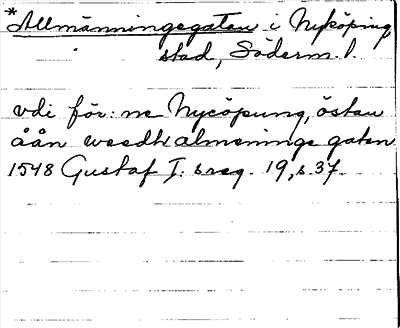 *Allmänningegatan i Nyköping
stad, Söderm. l.
vdi för: ne Nycöpung, östan
åån weedh almeninge gaten
1548 Gustaf I: s reg. 19, s 37